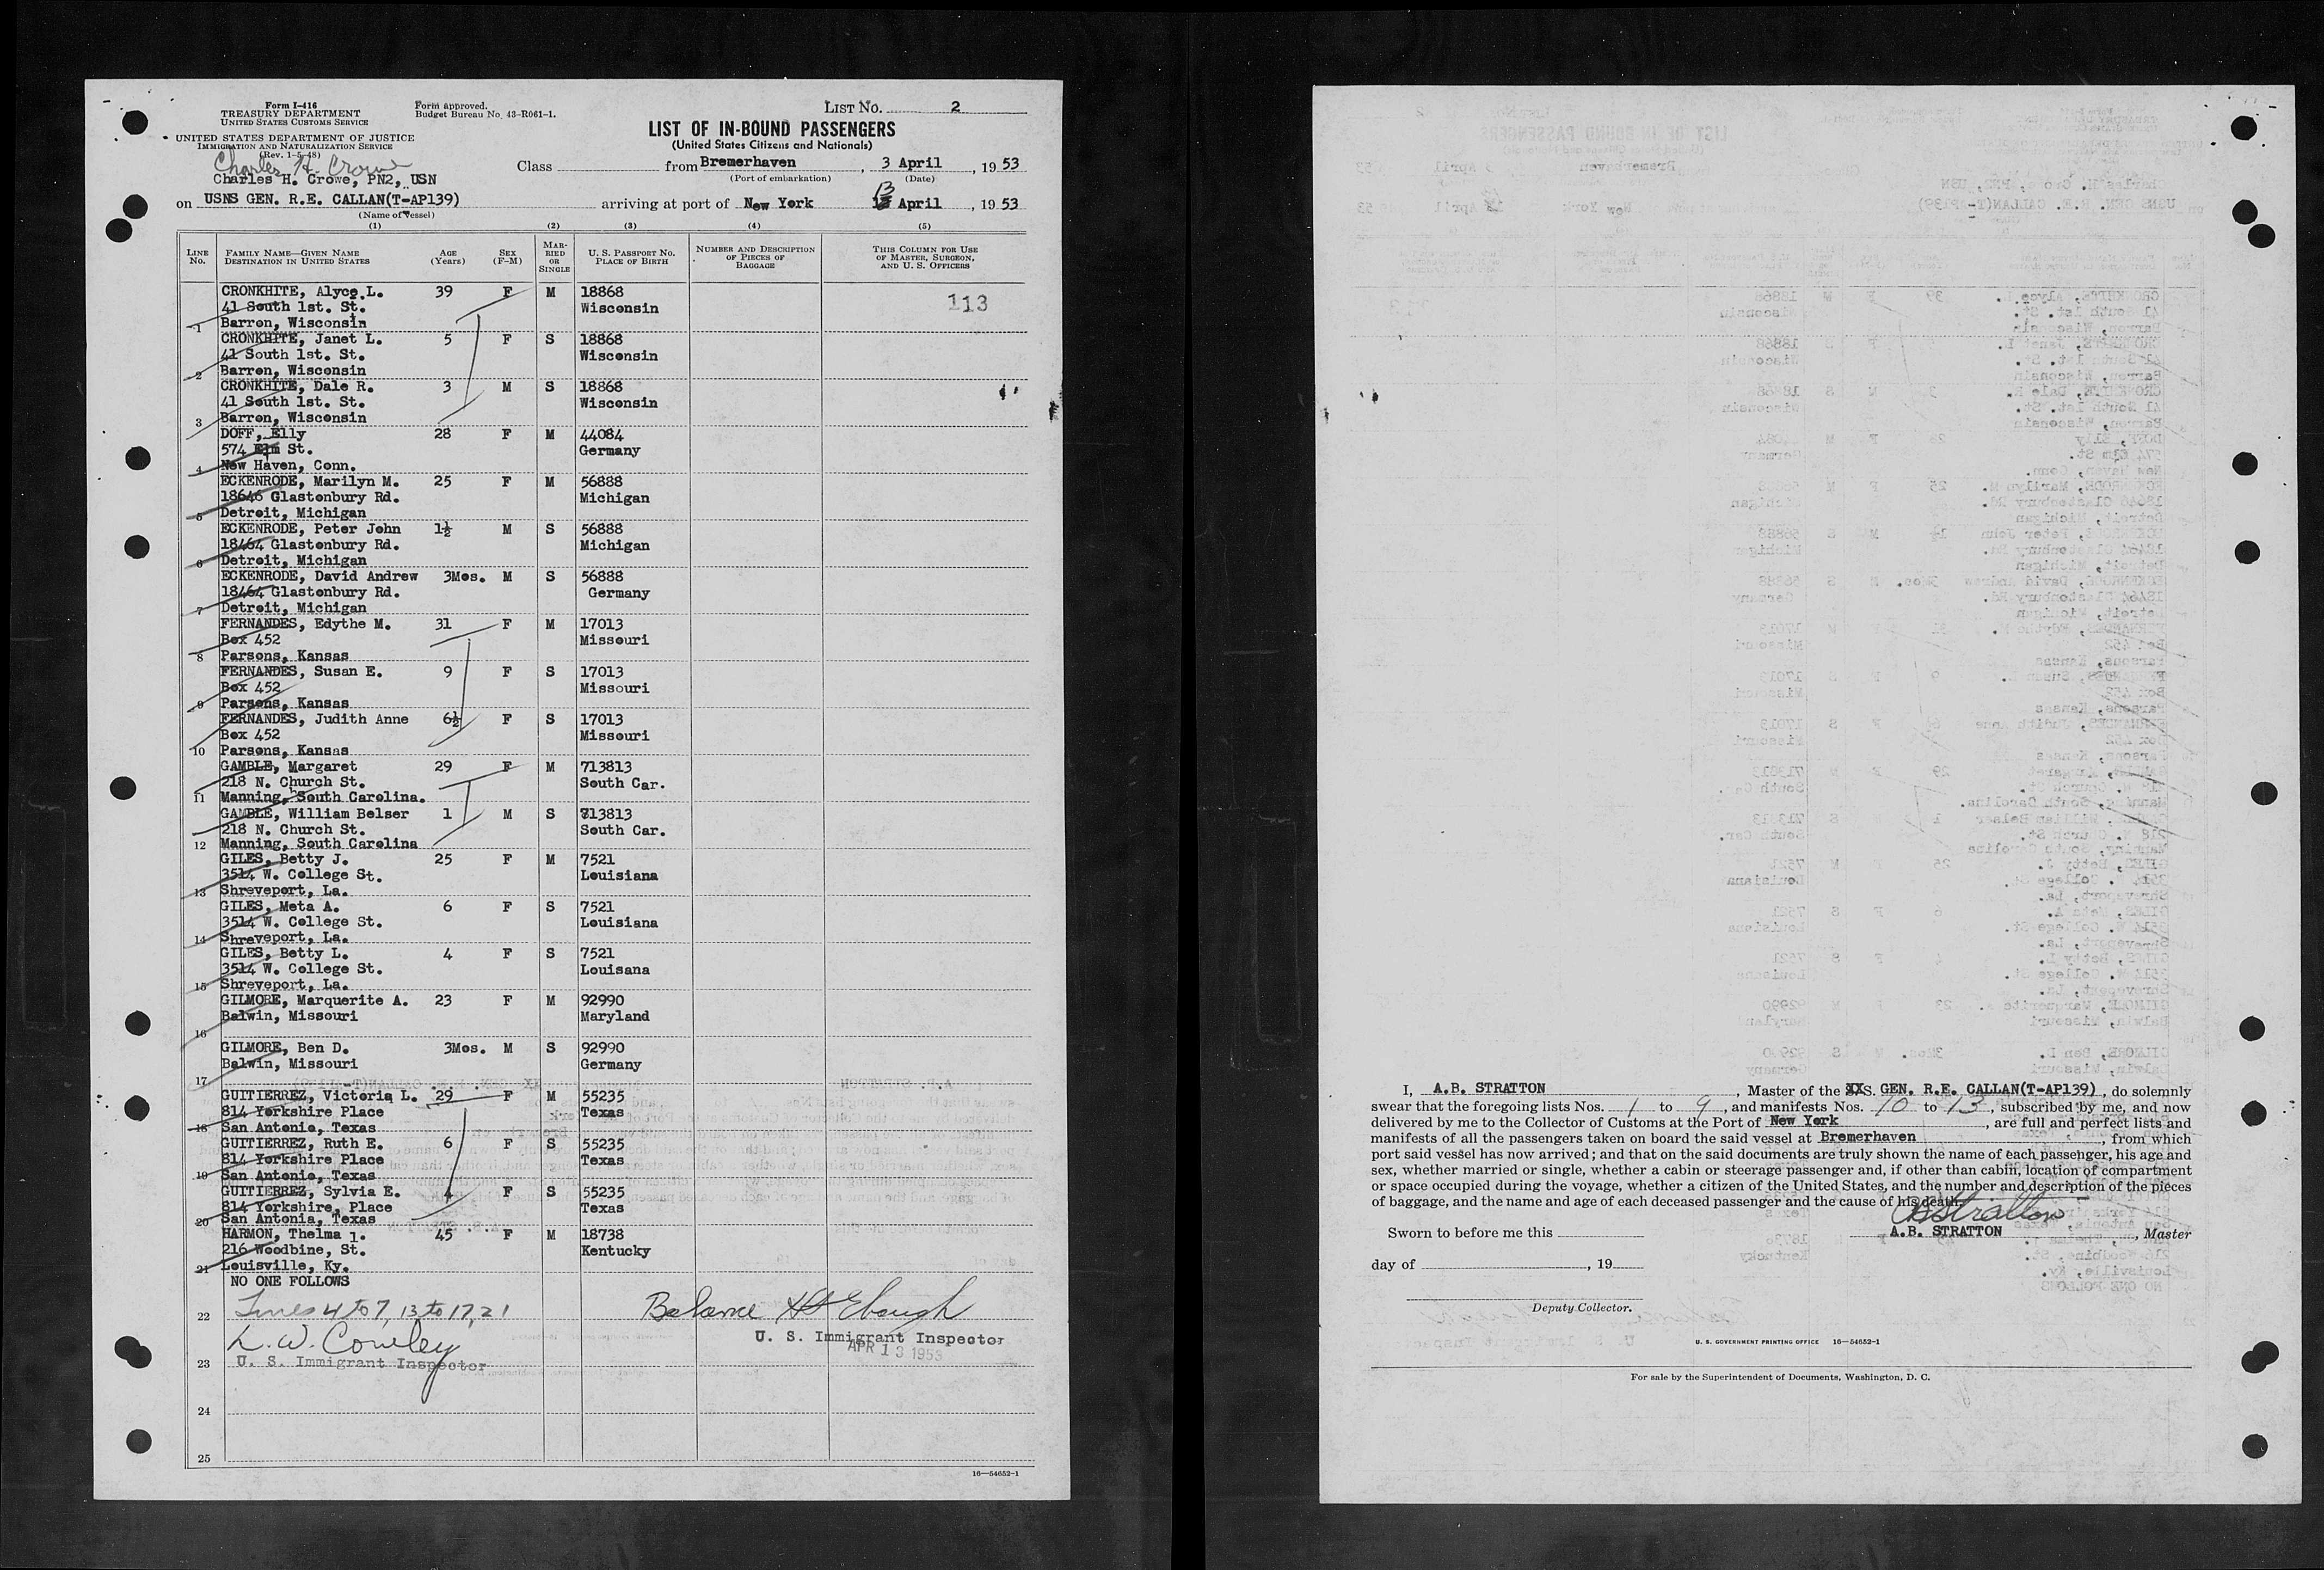 Form I-416
TREASURY DEPARTMENT
UNITED STATES CUSTOMS SERVICE
UNITED STATES DEPARTMENT OF JUSTICE
IMMIGRATION AND NATURALIZATION SERVICE
(Rev. 1-5-48)
Form approved.
Budget Bureau No. 43-R061-1.
LIST NO. 2
LIST OF IN-BOUND PASSENGERS
(United States Citizens and Nationals)
Charles H. Crowe
Charles H. Crowe, PN2, USN
Class from Bremerhaven, 3 April, 1953
(Port of embarkation) (Date)
on USNS GEN. R.E. CALLAN(T-AP139) arriving at port of New York 13 April, 1953
(Name of vessel)
(1) (2) (3) (4) (5)
LINE No. FAMILY NAME—GIVEN NAME DESTINATION IN UNITED STATES AGE (Years) SEX (F-M) MARRIED OR SINGLE U. S. PASSPORT NO. PLACE OF BIRTH NUMBER AND DESCRIPTION OF PIECES OF BAGGAGE THIS COLUMN FOR USE OF MASTER, SURGEON, AND U. S. OFFICERS
CRONKHITE, Alyce L. 39 F M 18868 113
41 South 1st. St. Wisconsin
1 Barron, Wisconsin
CRONKHITE, Janet L. 5 F S 18868
41 South 1st. St. Wisconsin
2 Barron, Wisconsin
CRONKHITE, Dale R. 3 M S 18868
41 South 1st. St. Wisconsin
3 Barron, Wisconsin
DOFF, Elly 28 F M 44084
574 Elm St. Germany
4 New Haven, Conn.
ECKENRODE, Marilyn M. 25 F M 56888
18646 Glastonbury Rd. Michigan
5 Detroit, Michigan
ECKENRODE, Peter John 1½ M S 56888
18464 Glastonbury Rd. Michigan
6 Detroit, Michigan
ECKENRODE, David Andrew 3Mos. M S 56888
18464 Glastonbury Rd. Germany
7 Detroit, Michigan
FERNANDES, Edythe M. 31 F M 17013
Box 452 Missouri
8 Parsons, Kansas
FERNANDES, Susan E. 9 F S 17013
Box 452 Missouri
9 Parsons, Kansas
FERNANDES, Judith Anne 6½ F S 17013
Box 452 Missouri
10 Parsons, Kansas
GAMBLE, Margaret 29 F M 713813
218 N. Church St. South Car.
11 Manning, South Carolina.
GAMBLE, William Belser 1 M S 713813
218 N. Church St. South Car.
12 Manning, South Carolina
GILES, Betty J. 25 F M 7521
3514 W. College St. Louisiana
13 Shreveport, La.
GILES, Meta A. 6 F S 7521
3514 W. College St. Louisiana
14 Shreveport, La.
GILES, Betty L. 4 F S 7521
3514 W. College St. Louisana
15 Shreveport, La.
GILMORE, Marquerite A. 23 F M 92990
Balwin, Missouri Maryland
16
GILMORE, Ben D. 3Mos. M S 92990
Balwin, Missouri Germany
17
GUITIERREZ, Victoria L. 29 F M 55235
814 Yorkshire Place Texas
18 San Antonio, Texas
GUITIERREZ, Ruth E. 6 F S 55235
814 Yorkshire Place Texas
19 San Antonio, Texas
GUITIERREZ, Sylvia E. 4 F S 55235
814 Yorkshire, Place Texas
20 San Antonia, Texas
HARMON, Thelma l. 45 F M 18738
216 Woodbine, St. Kentucky
21 Louisville, Ky.
NO ONE FOLLOWS
22 Lines 4 to 7, 13 to 17, 21 Balance
L. W. Cowley U. S. Immigrant Inspector
23 U. S. Immigrant Inspector APR 13 1953
24
25
16—54652-1
I, A.B. STRATTON, Master of the XXS. GEN. R.E. CALLAN(T-AP139), do solemnly
swear that the foregoing lists Nos. 1 to 9, and manifests Nos. 10 to 13, subscribed by me, and now
delivered by me to the Collector of Customs at the Port of New York, are full and perfect lists and
manifests of all the passengers taken on board the said vessel at Bremerhaven, from which
port said vessel has now arrived; and that on the said documents are truly shown the name of each passenger, his age and
sex, whether married or single, whether a cabin or steerage passenger and, if other than cabin, location of compartment
or space occupied during the voyage, whether a citizen of the United States, and the number and description of the pieces
of baggage, and the name and age of each deceased passenger and the cause of his death.
AB Stratton
Sworn to before me this A.B. STRATTON, Master
day of , 19
Deputy Collector.
U. S. GOVERNMENT PRINTING OFFICE 16—54652-1
For sale by the Superintendent of Documents, Washington, D. C.